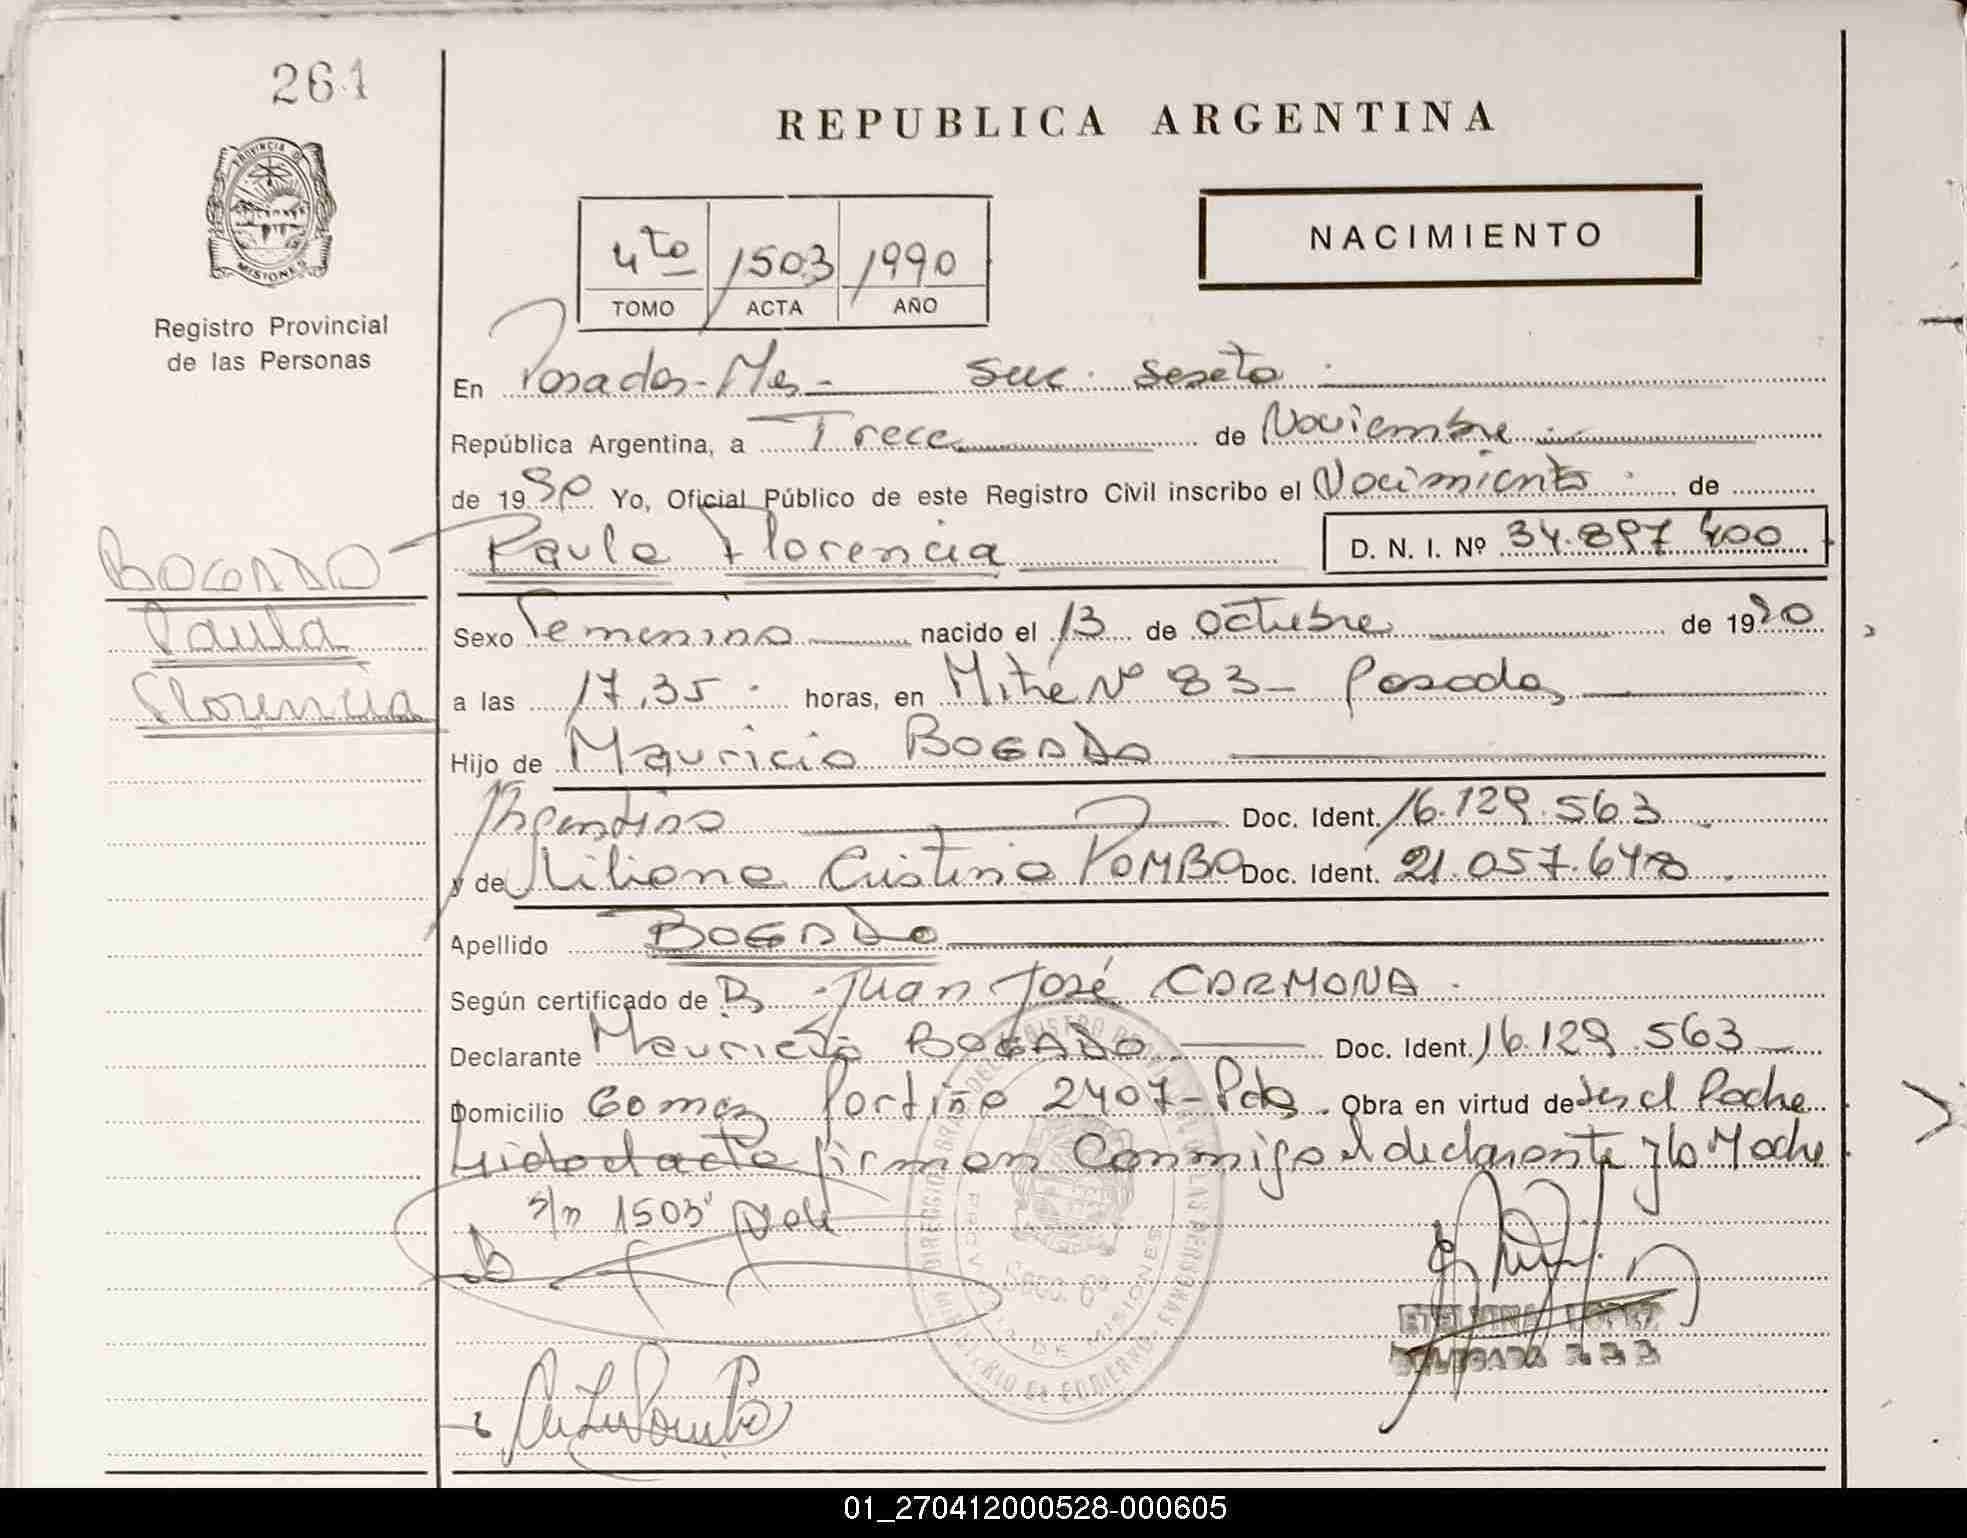 261
PROVINCIA DE
MISIONES
Registro Provincial
de las Personas
BOGADO
Paula
Florencia
REPUBLICA ARGENTINA
NACIMIENTO
4to 1503 1990
TOMO ACTA AÑO
En Posadas - Mes - Suc. Sexta
República Argentina, a Trece de Noviembre
de 1990 Yo, Oficial Público de este Registro Civil inscribo el Nacimiento de
Paula Florencia D. N. I. Nº 34.897 400
Sexo Femenino nacido el 13 de Octubre de 1990
a las 17,35 horas, en Mitre Nº 83 - Posadas
Hijo de Mauricio BOGADO
Argentino Doc. Ident. 16.129.563
y de Liliana Cristina POMBO Doc. Ident. 21.057.648
Apellido BOGADO
Según certificado de Juan José CARMONA
Declarante Mauricio BOGADO Doc. Ident. 16.129.563
Domicilio Gomez Portiño 2407 - Pdas. Obra en virtud de ser el Padre
firman conmigo el declarante y la Madre
1503 Vale
ETELVINA LOPEZ
DELEGADA
01_270412000528-000605